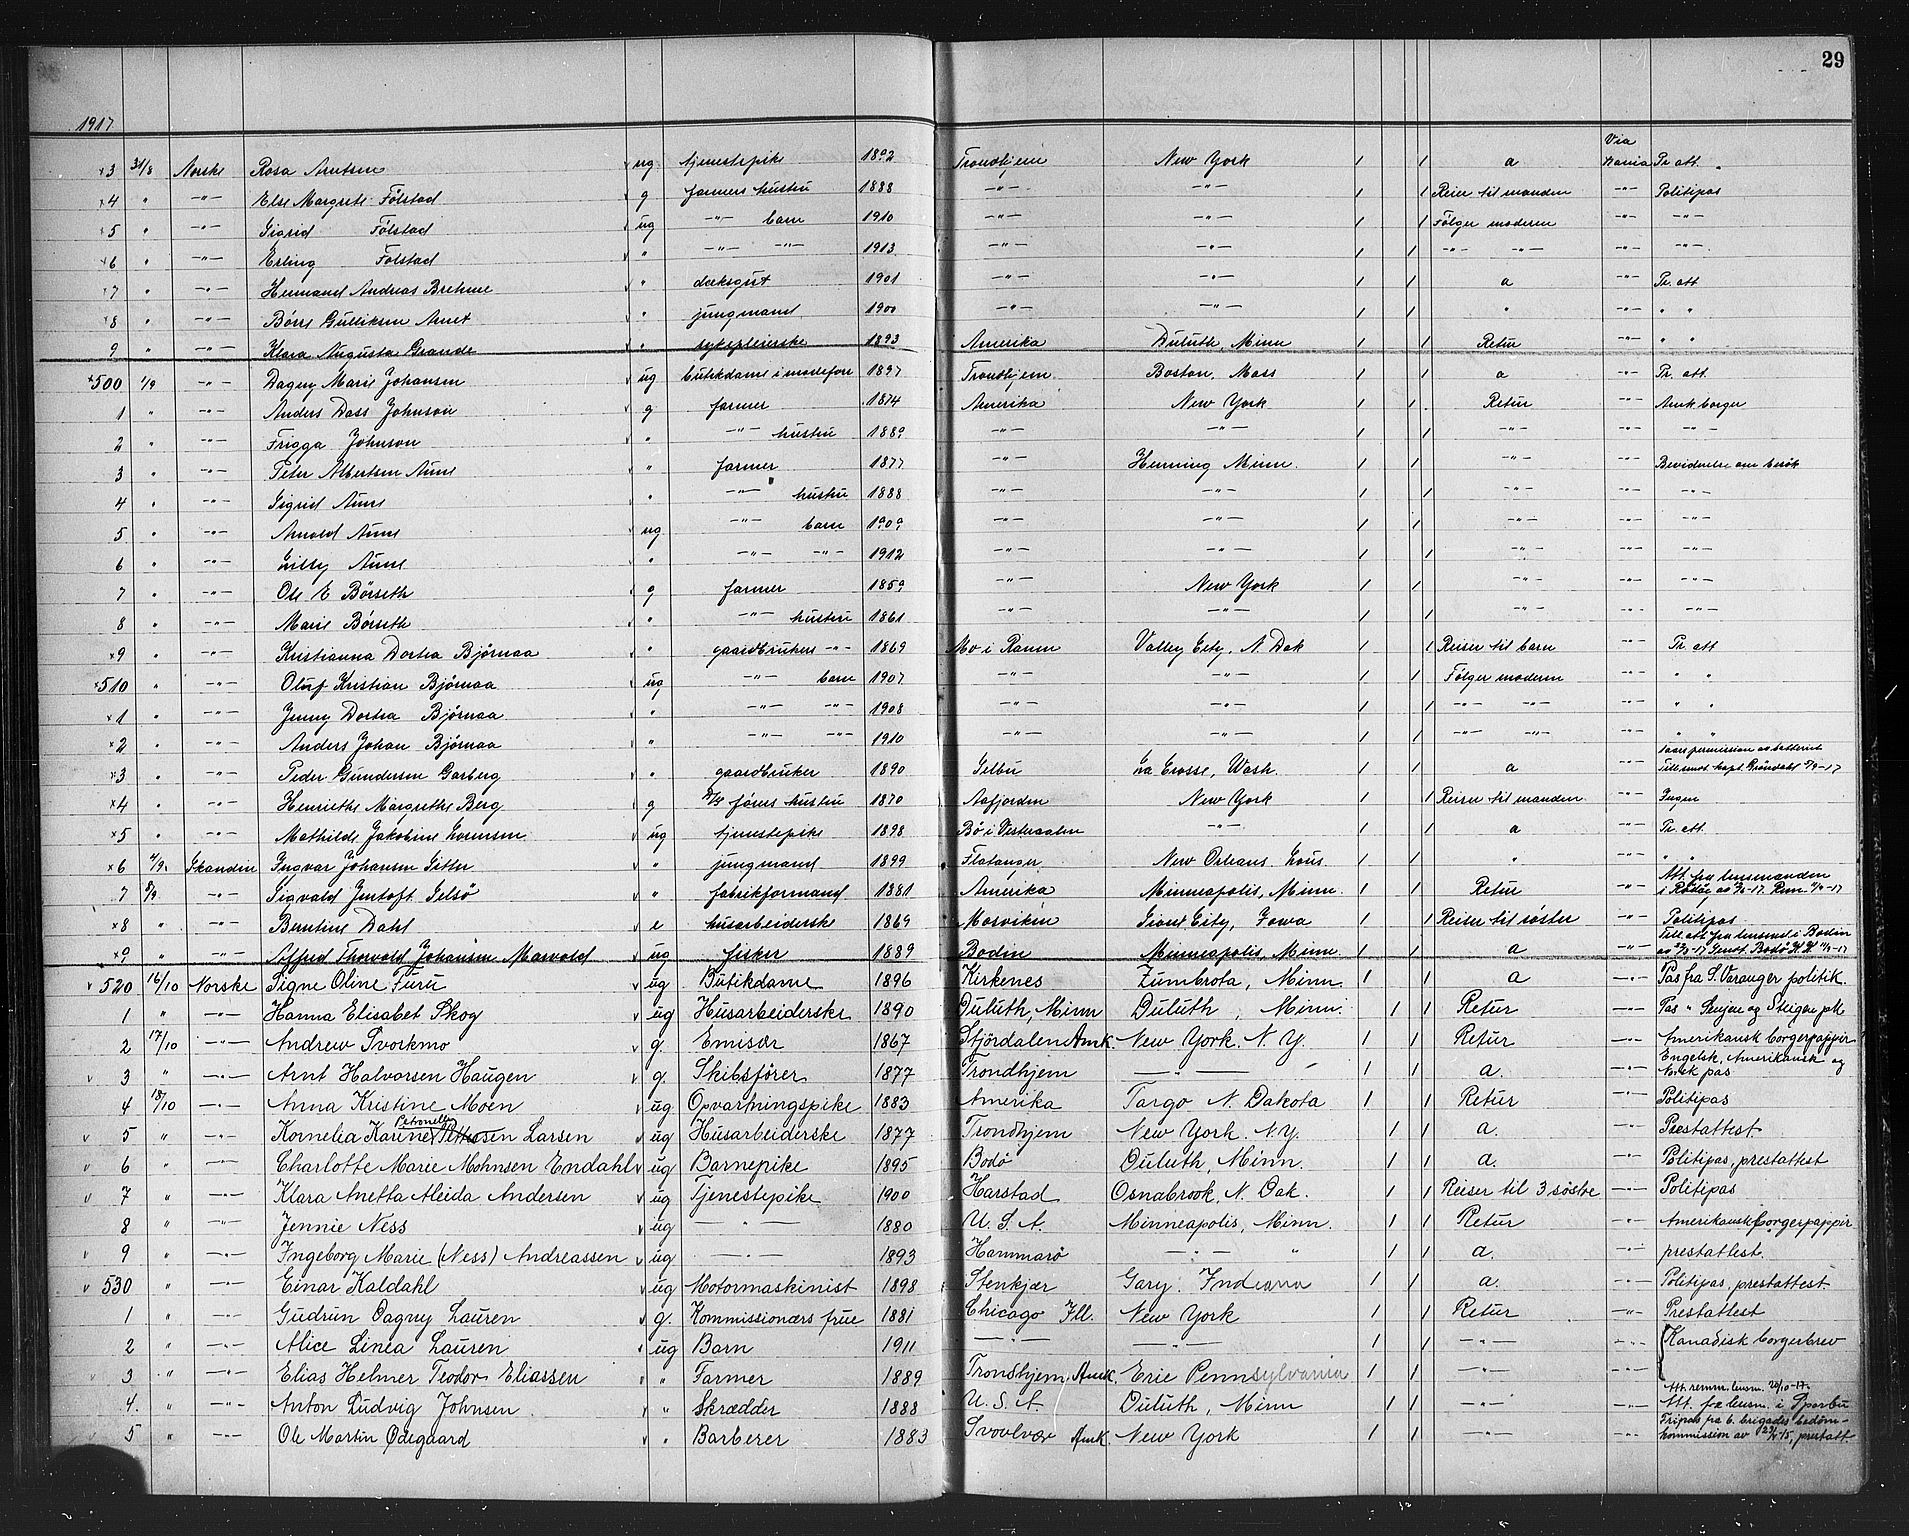 29
1917 Via
×3 31/8 Norske Rosa Arntsen ug tjenestepike 1892 Trondhjem New York 1 1 a Bania Pr. att.
×4 " -"- Else Margrete Følstad g farmers hustru 1888 -"- -"- 1 1 Reiser til manden -"- Politipas
×5 " -"- Sigrid Følstad ug -"- barn 1910 -"- -"- 1 1 Følger moderen -"- -"-
×6 " -"- Erling Følstad " -"- -"- 1913 -"- -"- 1 1 -"- -"- -"- -"-
×7 " -"- Hermand Andreas Brehme " dæksgut 1901 -"- -"- 1 1 a -"- Pr. att
×8 " -"- Børre Gulliksen Arnet " jungmand 1900 -"- -"- 1 1 " -"- " "
9 " -"- Klara Augusta Grande " sykepleierske 1893 Amerika Duluth, Minn 1 1 Retur -"- " "
×500 1/9 -"- Dagny Marie Johansen ug butikdame i modeforr 1897 Trondhjem Boston, Mass 1 1 a -"- Pr. att.
1 " -"- Anders Dass Johnson g farmer 1874 Amerika New York 1 1 Retur -"- Amk borger
2 " -"- Frigga Johnson " -"- hustru 1889 -"- -"- 1 1 -"- -"- -"-
3 " -"- Peter Albertsen Aune " farmer 1877 -"- Henning Minn. 1 1 -"- -"- Bevidnelse om besøk
4 " -"- Sigrid Aune " -"- hustru 1888 -"- -"- 1 1 -"- -"- -"-
5 " -"- Arnold Aune ug -"- barn 1909 -"- -"- 1 1 -"- -"- -"-
6 " -"- Lilly Aune " -"- -"- 1912 -"- -"- 1 1 -"- -"- -"-
7 " -"- Ole E Børseth g farmer 1859 -"- New York 1 1 -"- -"- -"-
8 " -"- Marie Børseth " -"- hustru 1861 -"- -"- 1 1 -"- -"- -"-
×9 " -"- Kristianna Dortea Bjørnaa " gaardbrukers -"- 1869 Mo i Ranen Valley City, N. Dak 1 1 Reiser til barn -"- Pr att
×510 " -"- Oluf Kristian Bjørnaa ug -"- barn 1907 -"- -"- 1 1 Følger moderen -"- " "
×1 " -"- Jenny Dortea Bjørnaa " -"- -"- 1908 -"- -"- 1 1 -"- -"- -"- " "
×2 " -"- Anders Johan Bjørnaa " -"- -"- 1910 -"- -"- 1 1 -"- -"- -"- " "
×3 " -"- Peder Gundersen Garberg " gaardbruker 1890 Selbu La Crosse, Wash. 1 1 a -"- permission av batteriet kapt. Grøndahl
×4 " -"- Henriette Margrethe Berg g hustru 1870 Aafjorden New York 1 1 Reiser til manden -"- Ingen
×5 " -"- Mathilde Jakobine Lorensen ug tjenestepike 1898 Bø i Vesteraalen -"- 1 1 a -"- Pr. att.
×6 Skandin Ingvar Johansen Sitter " jungmand 1899 Flatanger New Orleans. Lous. 1 1 " -"- " "
7 8/9 -"- Sigvald Jentoft Selsø " fabrikformand 1881 Amerika Minneapolis, Minn. 1 1 Retur -"- Att. fra lensmanden i Rødøy
×8 " -"- Berntine Dahl e husarbeiderske 1869 Mosviken Siout City, Jowa 1 1 Reiser til søster -"- Politipas
×9 " -"- Alfred Thorvald Johansen Marvold ug fisker 1889 Bodin Minneapolis, Minn 1 1 a -"- Till. att fra lensmd i Bodin
v 520 16/10 Norske Signe Oline Furu ug Butikdame 1896 Kirkenes Zumbrota, Minn 1 1 a -"- Pas fra S. Varanger politik.
1 " -"- Hanna Elisabet Skog ug Husarbeiderske 1890 Duluth, Minn Duluth, Minn. 1 1 Retur -"- Pas " Senjen og Steigen pk
2 17/10 -"- Andrew Tvorkmo g. Emisær 1867 Stjördalen Amk. New York. N.Y. 1 1 Retur -"- Amerikansk borgerpappir
v 3 " -"- Arnt Halvorsen Haugen g. Skibsförer 1877 Trondhjem -"- 1 1 a. -"- Engelsk, Amerikansk og Norsk pas
4 18/10 -"- Anna Kristine Moen ug Opvartningspike 1883 Amerika Fargo N. Dakota 1 1 Retur -"- Politipas
v 5 " -"- Kornelia Karine Petronelle Larsen ug Husarbeiderske 1877 Trondhjem New York. N.Y. 1 1 a. -"- Prestattest.
v 6 " -"- Charlotte Marie Mohnsen Endahl ug Barnepike 1895 Bodö Duluth, Minn. 1 1 a. -"- Politipas, prestattest
v 7 " -"- Klara Anetta Aleida Andersen ug Tjenestepike 1900 Harstad Osnabrook, N. Dak. 1 1 Reiser til 3 söstre -"- Politipas
8 " -"- Jennie Ness ug -"- 1880 U.S.A. Minneapolis, Minn. 1 1 Retur -"- Amerikansk borgerpappir
v 9 " -"- Ingeborg Marie (Ness) Andreassen ug -"- 1893 Hammarö -"- " 1 1 a. -"- prestattest.
v 530 " -"- Einar Kaldahl ug Motormaskinist 1898 Stenkjær Gary. Indiana 1 1 a. -"- Politipas, prestattest.
1 " -"- Gudrun Dagny Lauren g. Kommissionærs frue 1881 Chicago Ill. New York 1 1 Retur -"- Prestattest
2 " -"- Alice Linea Lauren ug Barn 1911 -"- -"- 1 1 -"- -"- Kanadisk borgerbrev
3 " -"- Elias Helmer Teodor Eliassen " Farmer 1889 Trondhjem, Amk. Erie Pennsylvania 1 1 -"- -"-
4. " -"- Anton Ludvig Johnsen " Skrædder 1888 U.S.A Duluth, Minn 1 1 -"- -"- Att. fra lensm. i Sparbu
5 " -"- Ole Martin Ødegaard " Barberer 1883 Svolvær Amk. New York 1 1 -"- -"- Fripas fra 6. brigades bedömkommission av prestatt.